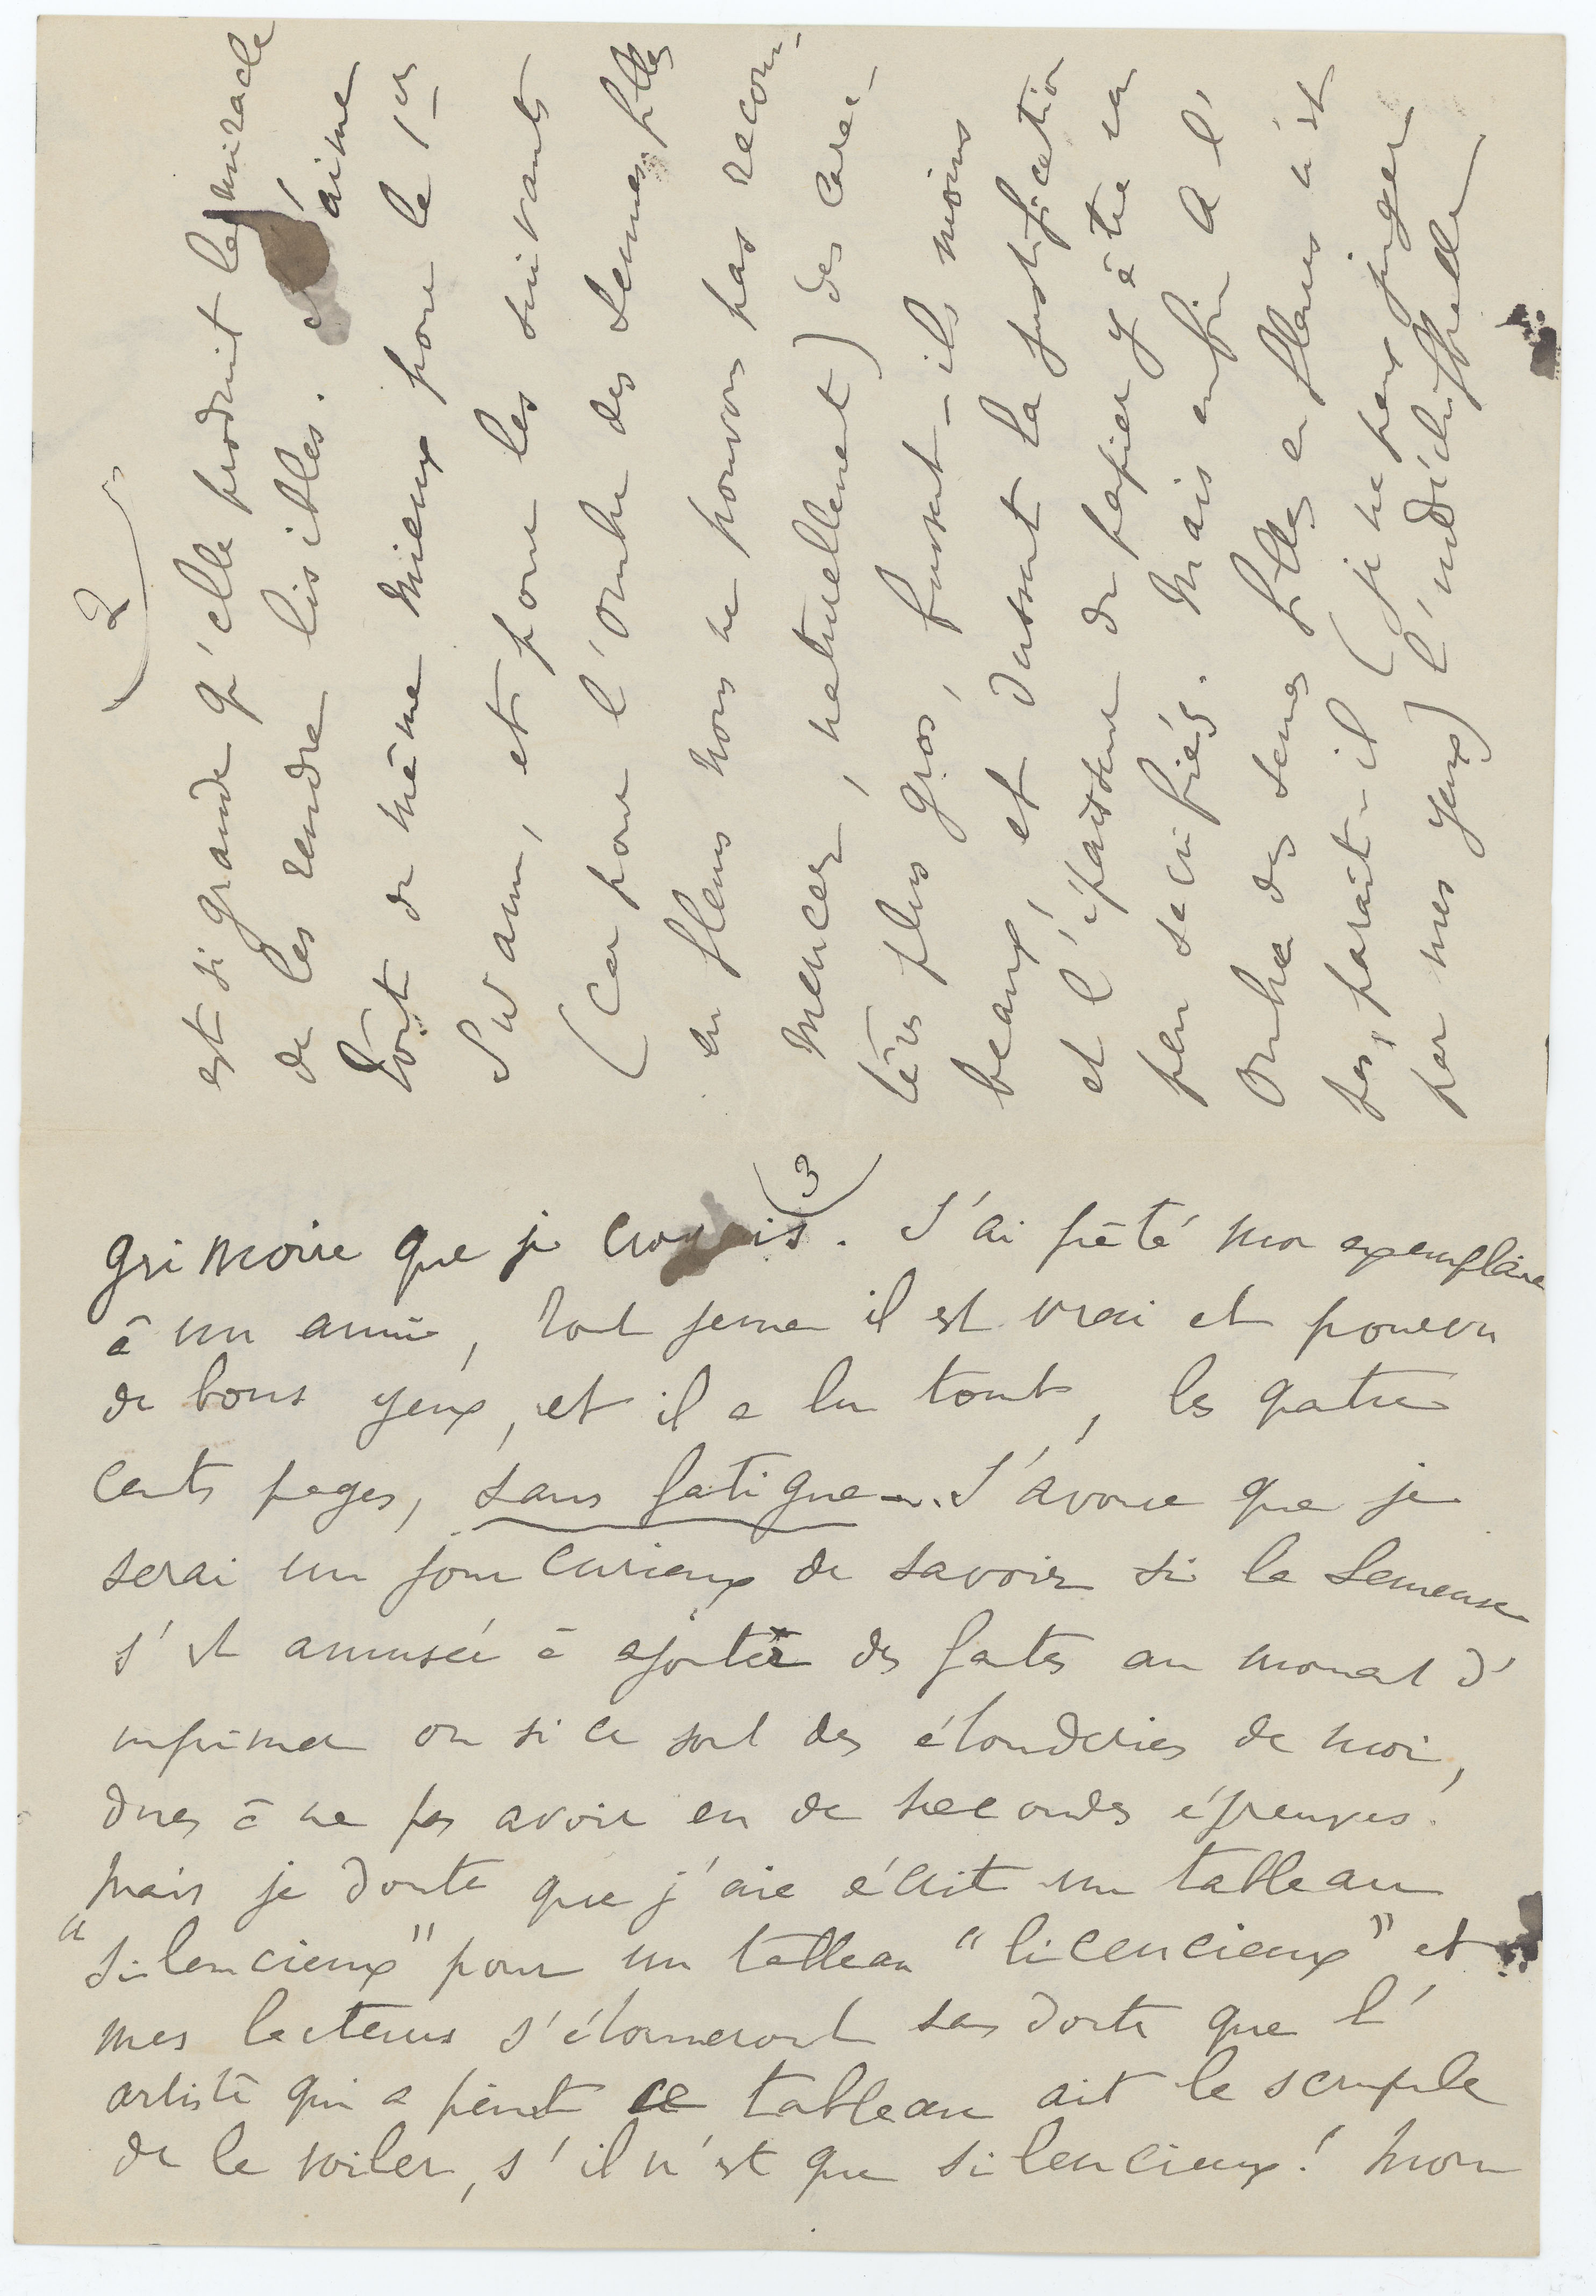 (2)
est si grande qu'elle produit le miracle
de les rendre lisibles. J'aime
tout de même mieux pour le 1er
Swann, et pour les suivants
(car pour l'Ombre des Jeunes filles
en fleurs nous ne pouvons pas recom-
mencer, naturellement) des carac-
tères plus gros, fussent-ils moins
beaux, et dussent la justification
et l'épaisseur du papier y être un
peu sacrifiés. Mais enfin A l'
Ombre des jeunes filles en fleurs n'est
pas, paraît-il (je ne peux juger
par mes yeux) l'indéchiffrable
(3)
grimoire que je croyais. J'ai prêté mon exemplaire
à un ami, tout jeune il est vrai et pourvu
de bons yeux, et il a lu tout, les quatre
cents pages, sans fatigue. J'avoue que je
serai un jour curieux de savoir si la Semeuse
s'est amusée à ajouter des fautes au moment d'
imprimer ou si ce sont des étourderies de moi,
dues à ne pas avoir eu de secondes épreuves.
Mais je doute que j'aie écrit un tableau
"silencieux" pour un tableau "licencieux" et
mes lecteurs s'étonneront sans doute que l'
artiste qui a peint ce tableau ait le scrupule
de le voiler, s'il n'est que silencieux! Mon